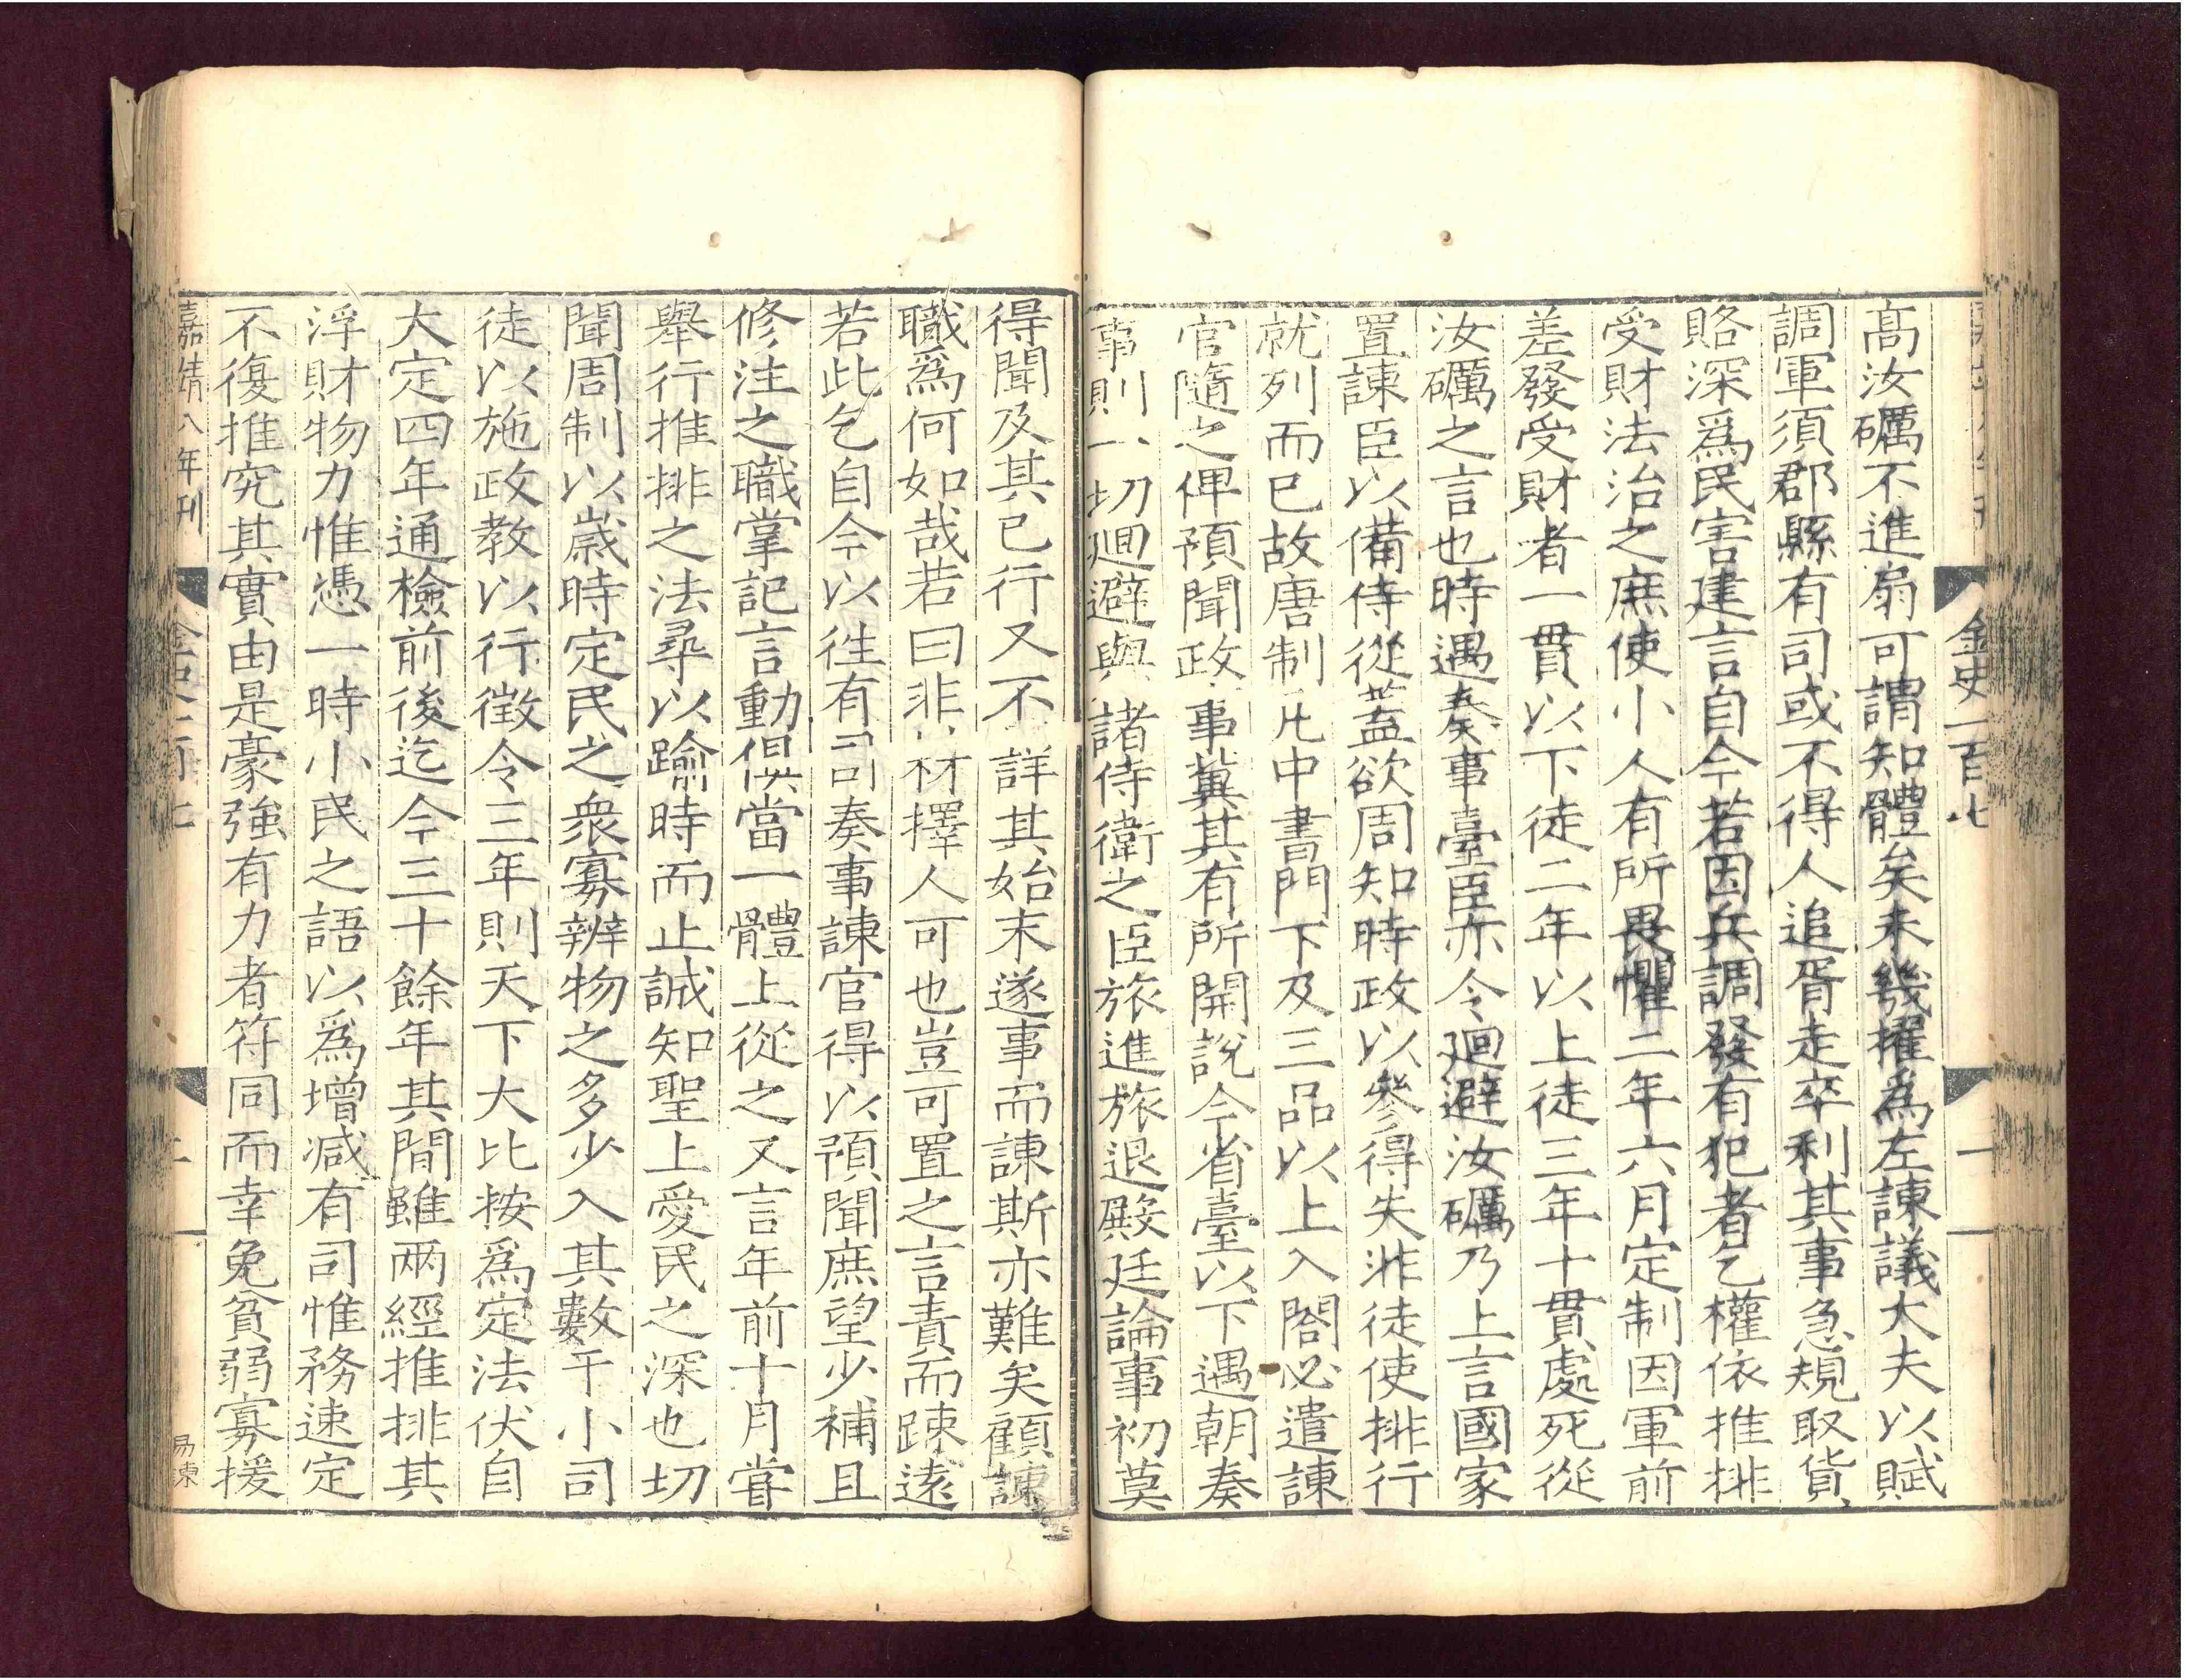 金史一百七
一
高汝礪不進扇可謂知體矣未幾擢爲左諫議大夫以賦
調軍須郡縣有司或不得人追胥走卒利其事急規取貨
賂深爲民害建言自今若因兵調發有犯者乞權依推排
受財法治之庶使小人有所畏懼二年六月定制因軍前
差發受財者一貫以下徒二年以上徒三年十貫處死從
汝礪之言也時遇奏事臺臣亦令廻避汝礪乃上言國家
置諫臣以備侍從蓋欲周知時政以參得失非徒使排行
就列而已故唐制凡中書門下及三品以上入閤必遣諫
官隨之俾預聞政事冀其有所開說今省臺以下遇朝奏
事則一切廻避與諸侍衛之臣旅進旅退殿廷論事初莫
得聞及其已行又不詳其始末遂事而諫斯亦難矣顧諫
職爲何如哉若曰非材擇人可也豈可置之言責而踈遠
若此乞自今以徃有司奏事諫官得以預聞庶望少補且
修注之職掌記言動俱當一體上從之又言年前十月甞
舉行推排之法尋以踰時而止誠知聖上愛民之深也切
聞周制以歲時定民之衆寡辨物之多少入其數于小司
徒以施政教以行徵令三年則天下大比按爲定法伏自
大定四年通檢前後迄今三十餘年其間雖兩經推排其
浮財物力惟憑一時小民之語以爲增減有司惟務速定
不復推究其實由是豪強有力者符同而幸免貧弱寡援
嘉靖八年刊
二
易諫